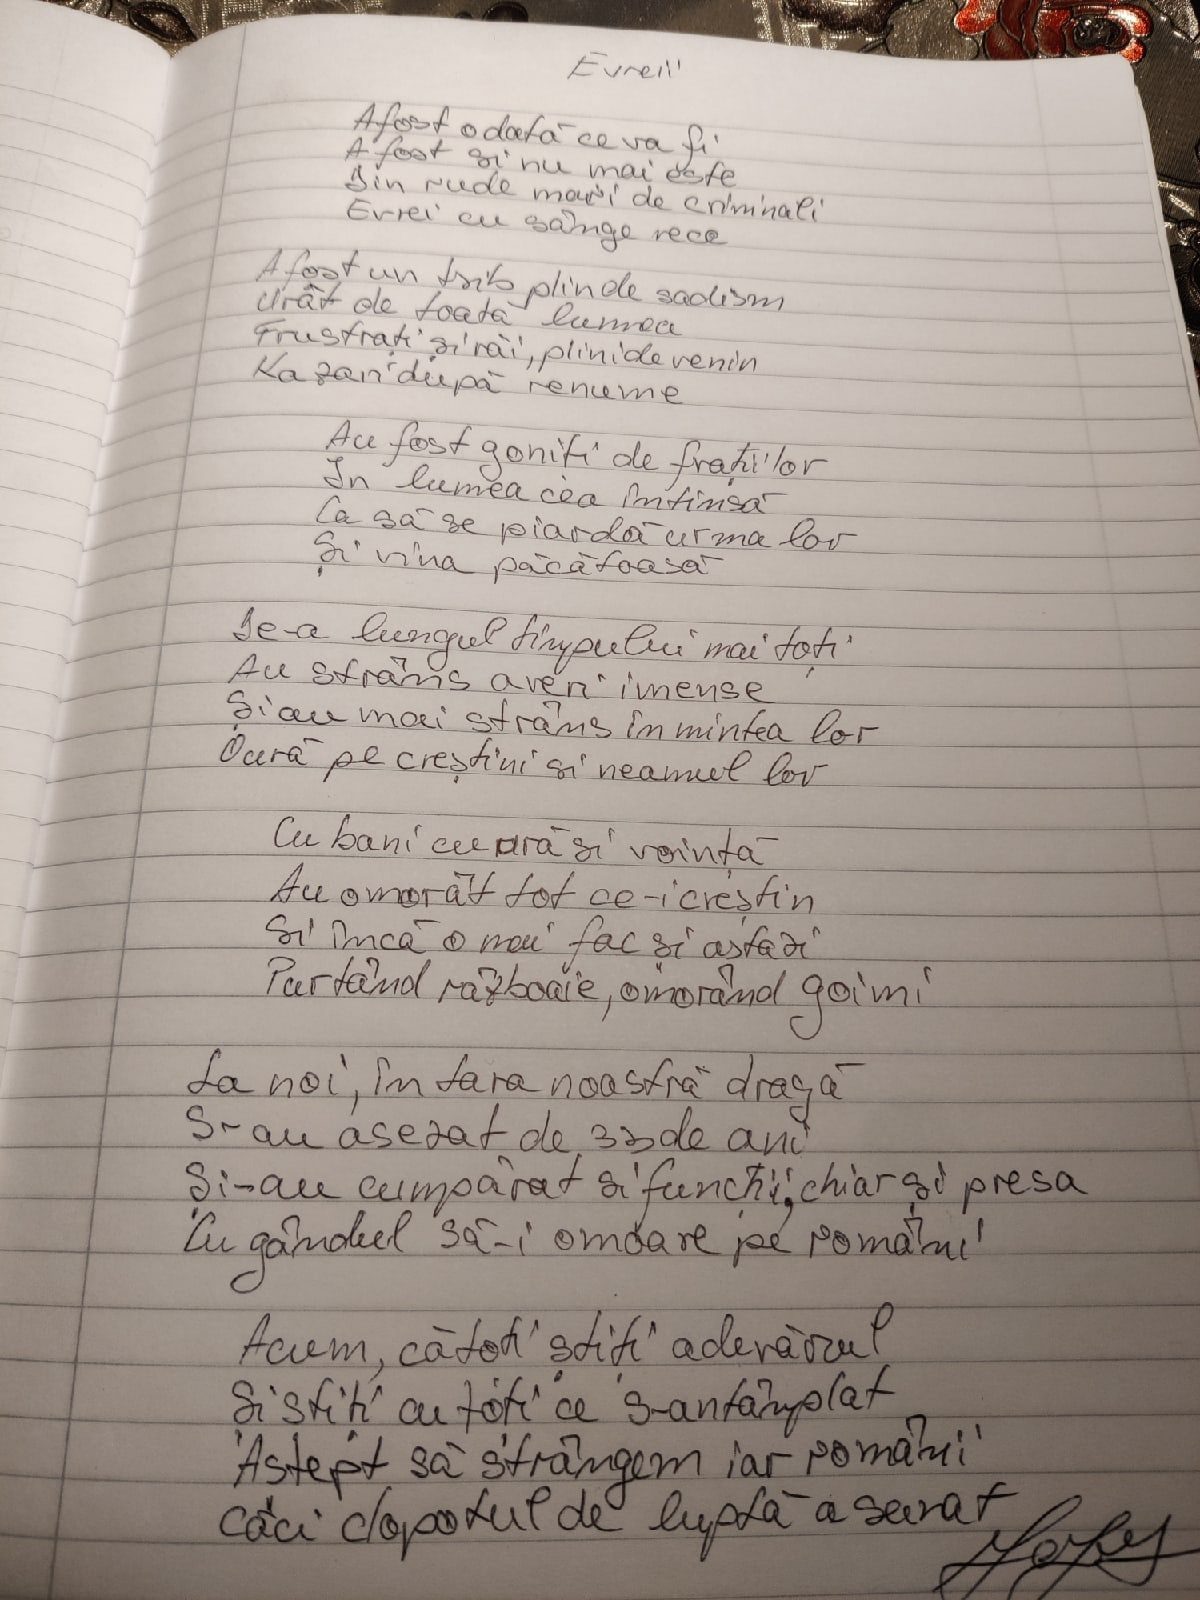 Evreii
A fost odată ce va fi
A fost si nu mai este
Din rude mari de criminali
Evrei cu sânge rece
A fost un trib plin de sadism
Urât de toată lumea
Frustrați și răi, plini de venin
Kazari după renume
Au fost goniti de frații lor
In lumea cea întinsă
Ca să se piardă urma lor
Și vina păcătoasă
De-a lungul timpului mai toți
Au strâns averi imense
Și au mai strâns în mintea lor
Oură pe creștini si neamul lor
Cu bani cu ură si voință
Au omorât tot ce-i creștin
Si încă o mai fac si astazi
Purtând războaie, omorând goimi
La noi, în tara noastră dragă
S-au asezat de ani
Și-au cumpărat si funcții, chiar și presa
Cu gândul să-i omoare pe români
Acum, că toti știți adevărul
Si stiți cu toți ce s-antâmplat
Astept să strângem iar români
Căci clopotul de luptă a sunat